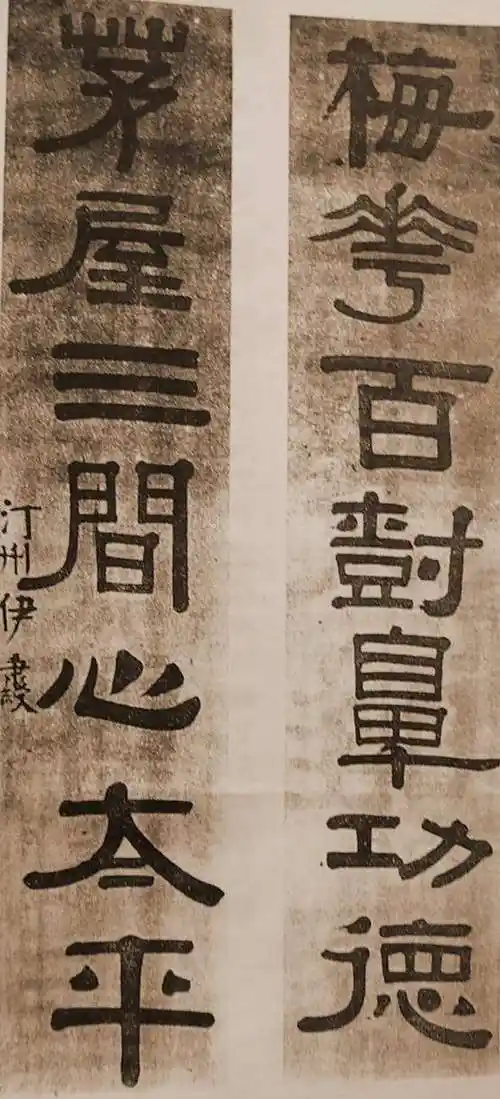 梅花百樹鼻功德
茅屋三間心太平
汀州伊秉綬